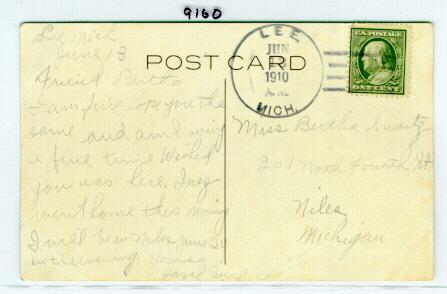 9160
Lee Mich
June 13
POST CARD
LEE
JUN
13
1910
A.M.
MICH.
U.S. POSTAGE
ONE CENT
Friend Bertha
I am fine hope you the
same and am having
a fine time Wished
you was here. Inez
went home this morning
I will be in Niles June 20
in the evening Yours
Hazel
Miss Bertha Swartz
201 North Fourth St
Niles
Michigan